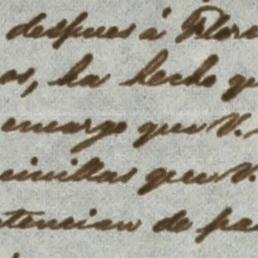 despues á Flore
os, ha hecho q
encargo que V.
sinillas que V.
tencian de pa